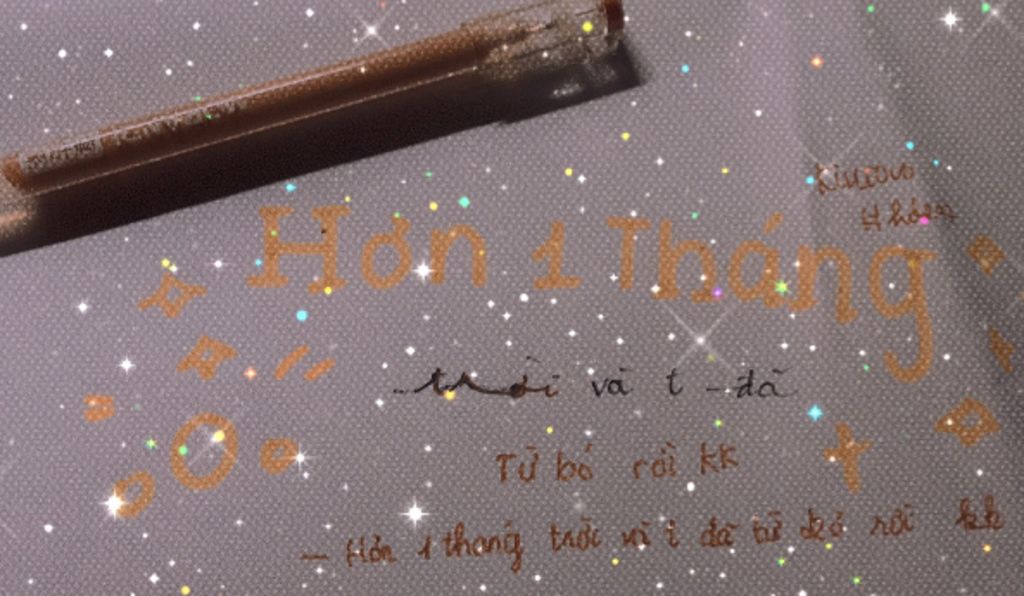 Hơn 1 Tháng
trời và t - đã
Từ bỏ rồi kk
- Hơn 1 tháng trời và t đã từ bỏ rồi kk